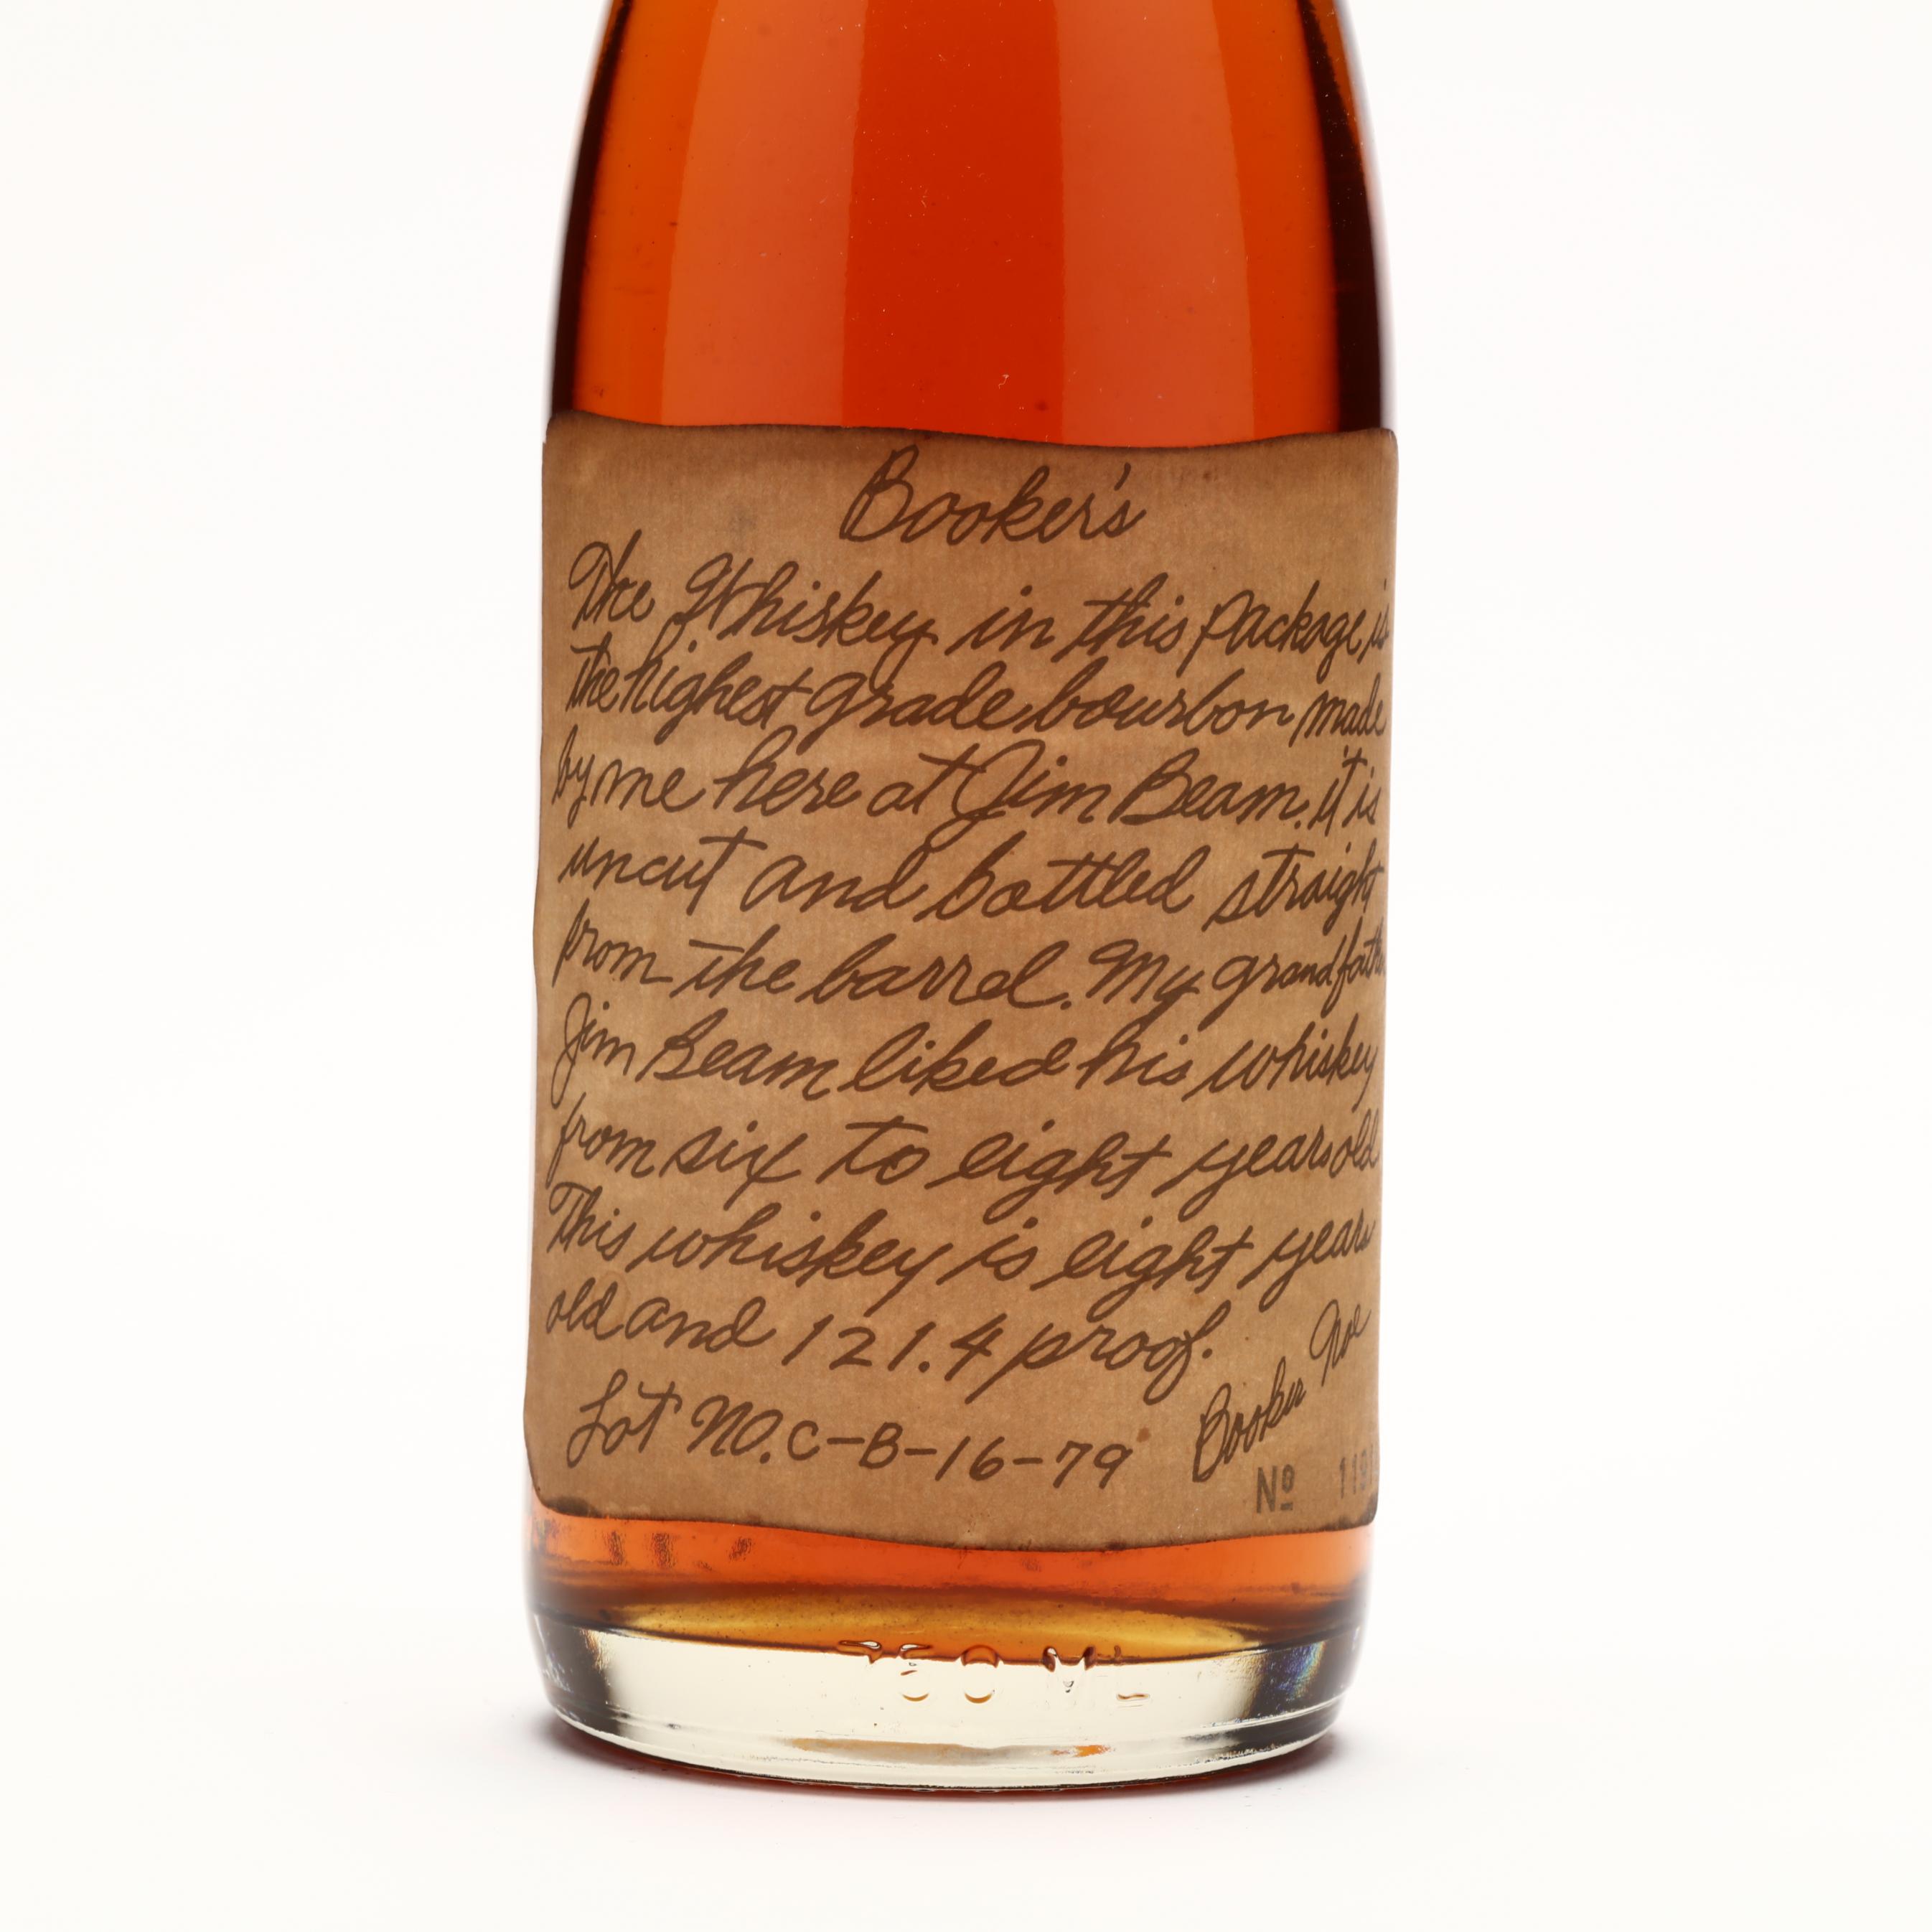 Booker's
The Whiskey in this package is
the highest grade bourbon made
by me here at Jim Beam. it is
uncut and bottled straight
from the barrel. My grandfath
Jim Beam liked his whiskey
from six to eight years old
This whiskey is eight years
old and 121.4 proof.
Booker Noe
Lot NO. C-B-16-79
Nº
750 ML